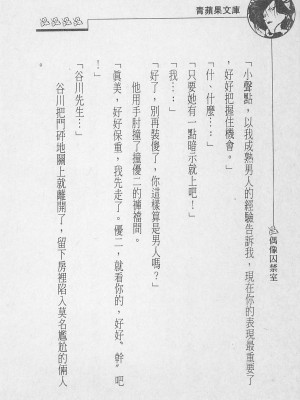 青蘋果文庫
偶像囚禁室
「小聲點，以我成熟男人的經驗告訴我，現在你的表現最重要了
，好好把握住機會。」
「什、什麼…：」
「只要她有一點暗示就上吧！」
「我…：」
「好了，別再裝傻了，你這樣算是男人嗎？」
他用手肘撞了撞優二的褲襠間。
「真美，好好保重，我先走了。優二，就看你的，好好〝幹〞吧
！」
「谷川先生…：」
谷川把門砰地關上就離開了，留下房裡陷入莫名尷尬的倆人
。